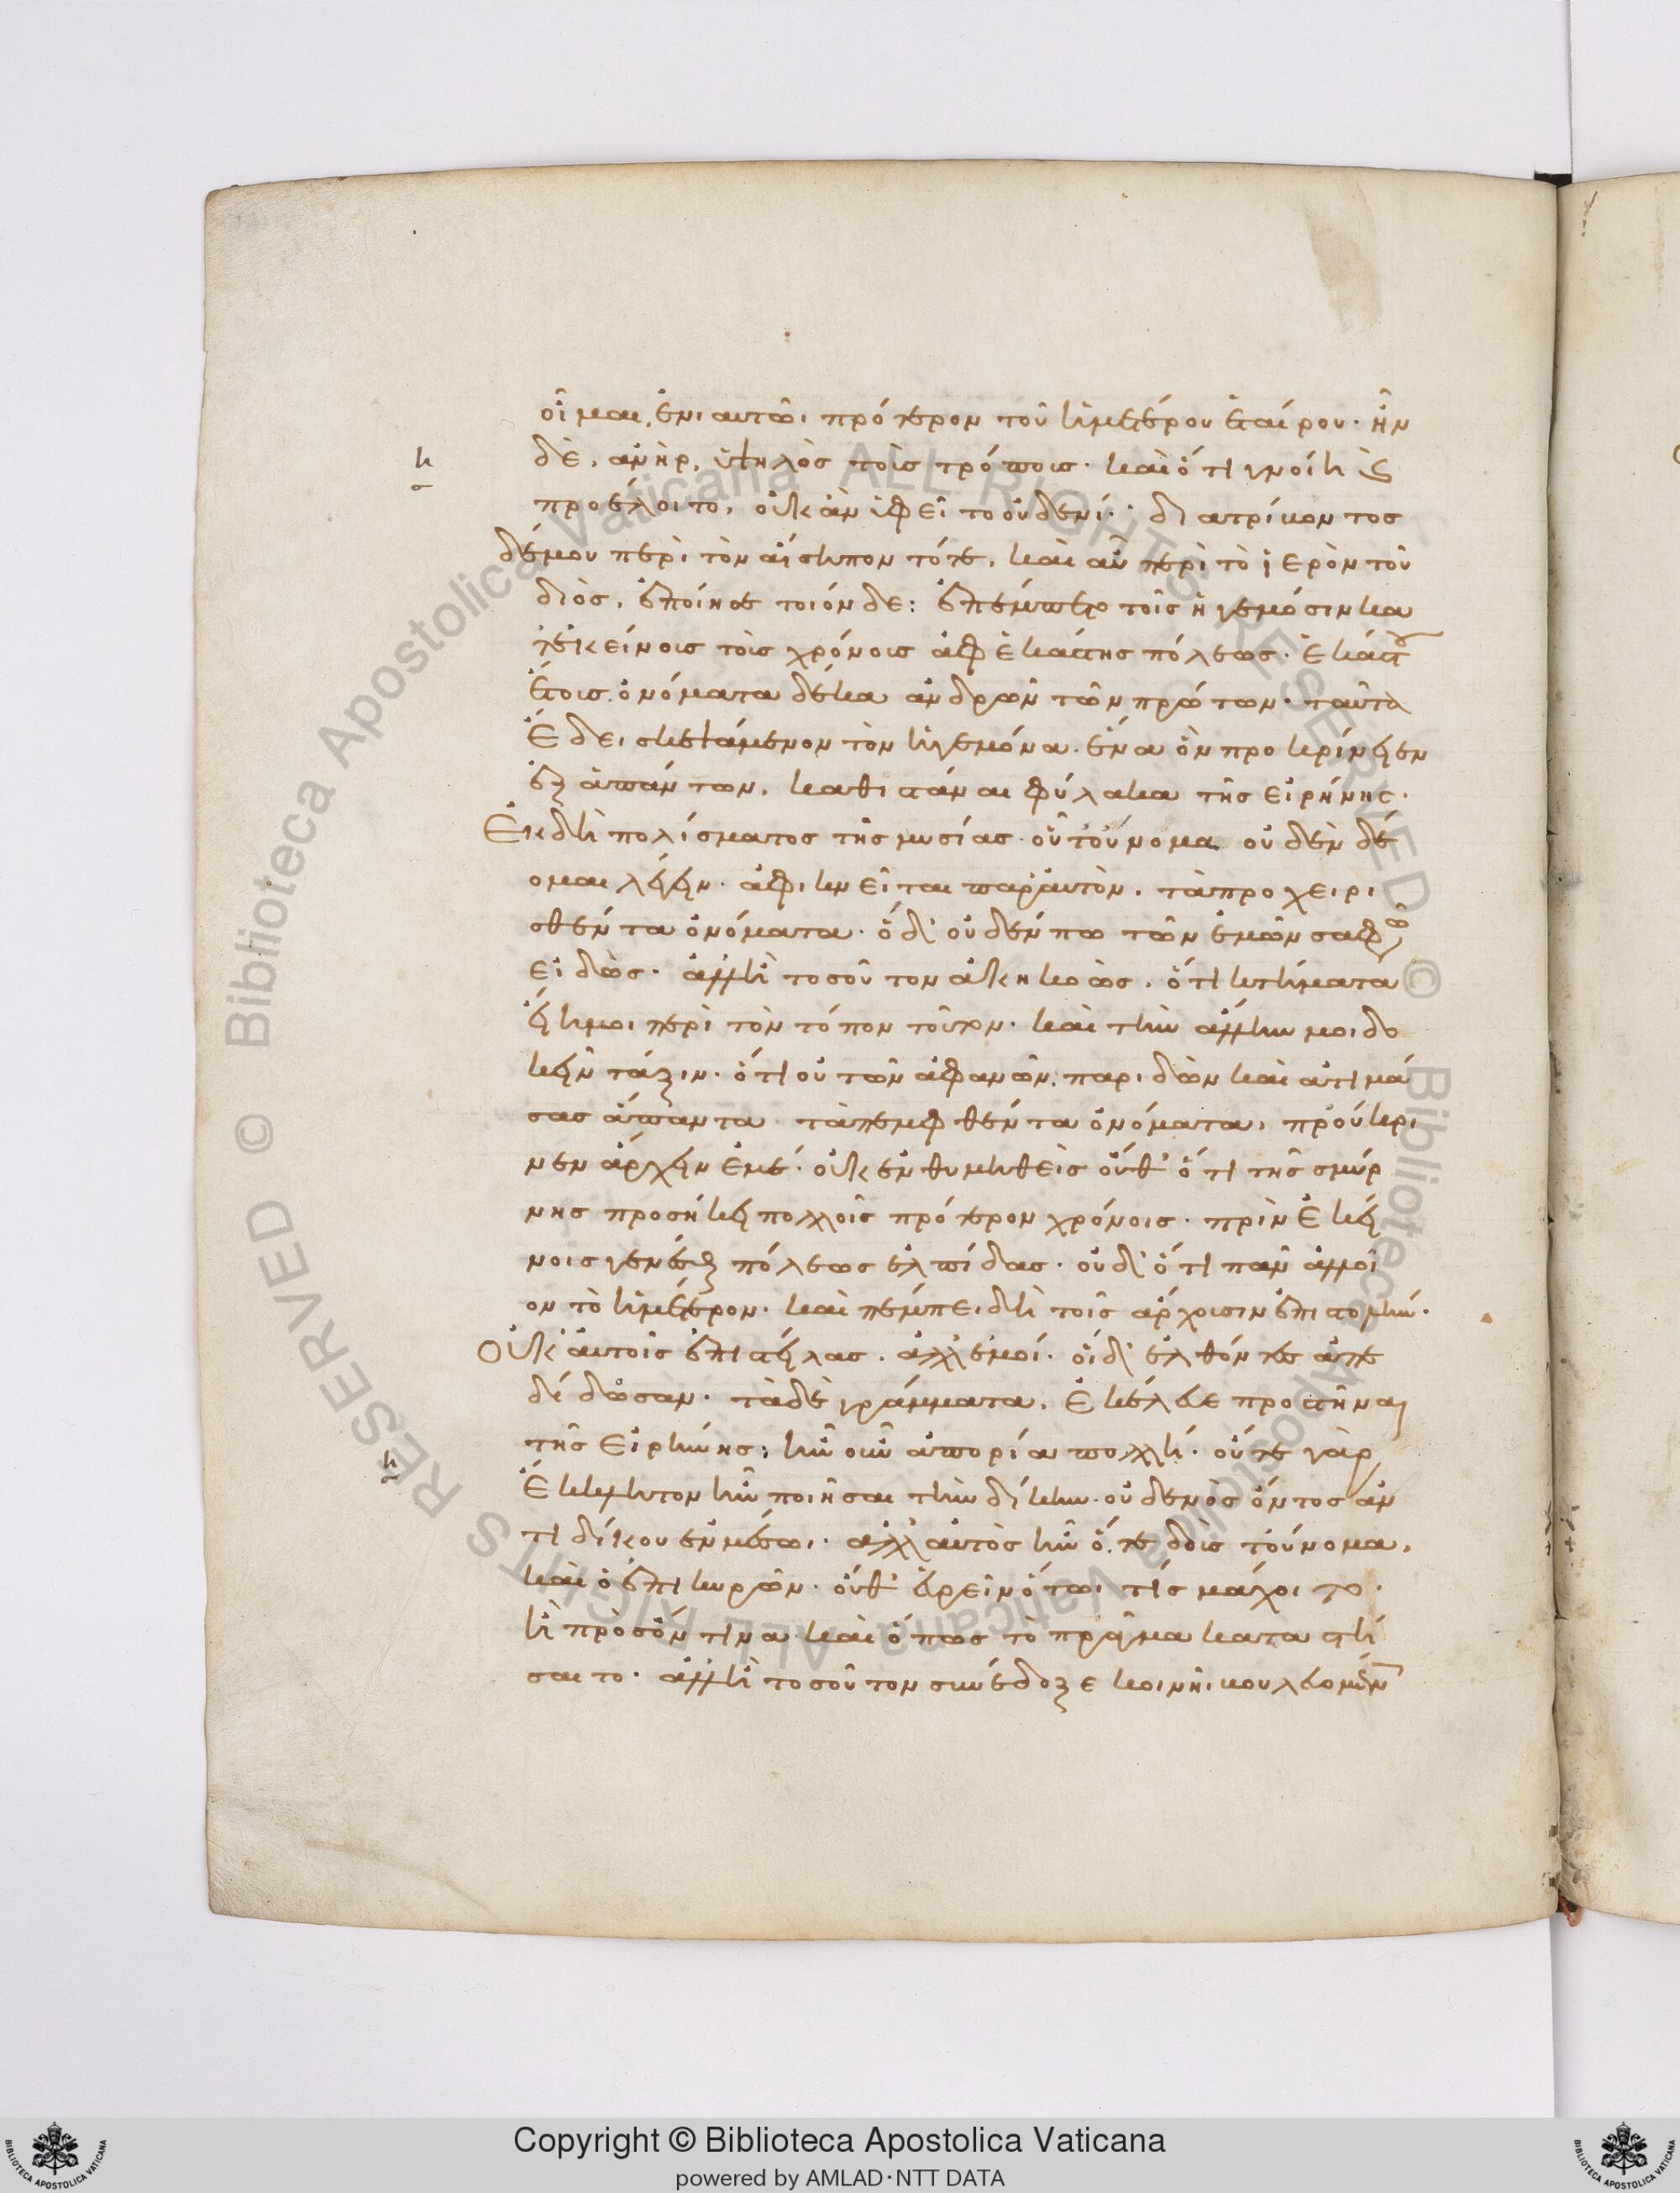 οἶμαι, ἐνιαυτῶι πρότερον τοῦ ἡμετέρου ἑταίρου· ἦν
δὲ, ἀνὴρ, ὑψηλὸς τοῖς τρόποις· καὶ ὅτι γνοίη καὶ
προέλοιτο, οὐκ ἂν ὑφεῖτο οὐδενί· διατρίβοντος
δέ μου περὶ τὸν αἴσηπον τότε, καὶ αὖ περὶ τὸ ἱερὸν τοῦ
διὸς, ἐποίησε τοιόνδε: ἐπέμπετο τοῖς ἡγεμόσιν κα
τ' ἐκείνοις τοῖς χρόνοις ἀφ' ἑκάστης πόλεως· ἑκάστου
ἔτους ὀνόματα δέκα ἀνδρῶν τῶν πρώτων· ταῦτα
ἔδει σκεψάμενον τὸν ἡγεμόνα· ἕνα ὃν προκρίνειεν
ἐξ ἁπάντων, καθιστάναι φύλακα τῆς εἰρήνης·
Ἐκ δὴ πολίσματος τῆς μυσίας· οὗ τοὔνομα οὐδὲν δέ
ομαι λέγειν· ἀφικνεῖται παρ' αὐτὸν, τὰ προχειρι
σθέντα ὀνόματα· ὁ δ' οὐδέν πω τῶν ἐμῶν σαφῶς
εἰδὼς· ἀλλ' ἢ τοσοῦτον ἀκηκοὼς, ὅτι κτήματα
εἴη μοι περὶ τὸν τόπον τοῦτον· καὶ τὴν ἄλλην μοι δο
κεῖν τάξιν· ὅτι οὐ τῶν ἀφανῶν, παριδὼν καὶ ἀτιμά
σας ἅπαντα τὰ πεμφθέντα ὀνόματα, προύκρι
νεν ἄρχειν ἐμέ· οὐκ ἐνθυμηθεὶς οὔθ' ὅτι τῆς σμύρ
νης προσήκει πολλοῖς πρότερον χρόνοις· πρὶν ἐκεί
νοις γενέσθαι πόλεως ἐλπίδας· οὐδ' ὅτι πᾶν ἀλλοῖ
ον τὸ ἡμέτερον· καὶ πέμπει δὴ τοῖς ἄρχουσιν ἐπιστολήν·
Οὐκ αὐτοῖς ἐπιστείλας, ἀλλ' ἐμοί· οἱ δ' ἐλθόντες ἀπε
δίδοσαν· τὰ δὲ γράμματα, ἐκέλευε προστῆναι
τῆς εἰρήνης: ἦν οὖν ἀπορία πολλή· οὔτε γὰρ
ἔκκλητον ἦν ποιῆσαι τὴν δίκην· οὐδενὸς ὄντος ἀν
τιδίκου ἐν μέσωι· ἀλλ' αὐτὸς ἦν ὅ τε δοὺς τοὔνομα,
καὶ ὁ ἐπικυρῶν· οὔθ' εὑρεῖν ὅτωι τίς μάχοιτο·
ἢ πρὸς ὅντινα· καὶ ὅπως τὸ πρᾶγμα καταστή
σαιτο· ἀλλ' ἢ τοσοῦτον συνέδοξε κοινῆι βουλευομένοις